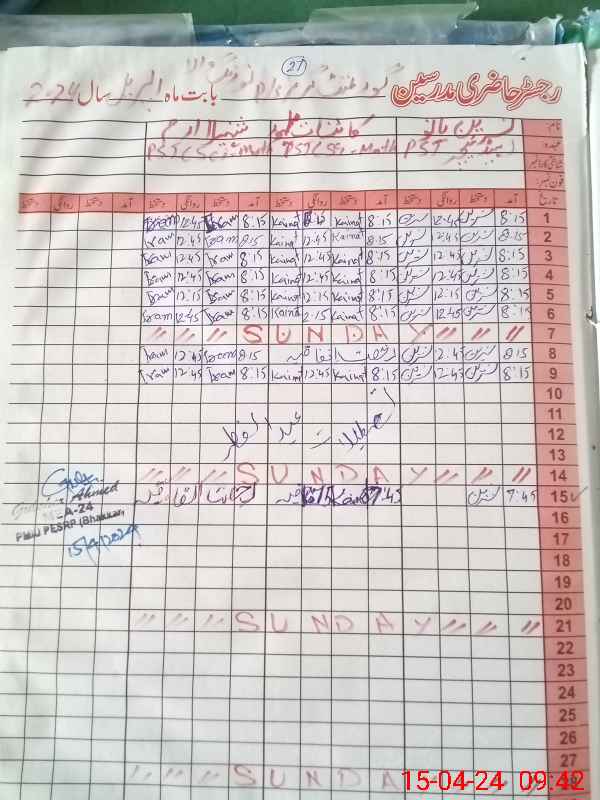 27
رجسٹر حاضری مدرسین گورنمنٹ بابت ماہ اپریل سال 2024
نام نسرین بانو کائنات شہیلا ارم
عہدہ ہیڈ ٹیچر PST PST (Sci-Math PST (Sci-Math
فون نمبر:
تاریخ آمد دستخط روانگی دستخط آمد دستخط روانگی دستخط آمد دستخط روانگی دستخط آمد دستخط روانگی دستخط
1 8:15 نسرین 12:45 نسرین 8:15 Kainat Kainat 8:15 Iram 12:45 Iram
2 8:15 نسرین 12:45 نسرین 8:15 Kainat 12:45 Kainat 8:15 Iram 12:45 Iram
3 8:15 نسرین 12:45 نسرین 8:15 Kainat 12:45 Kainat 8:15 Iram 12:45 Iram
4 8:15 نسرین 12:45 نسرین 8:15 Kainat 12:45 Kainat 8:15 Iram 12:45 Iram
5 8:15 نسرین 12:15 نسرین 8:15 Kainat 12:15 Kainat 8:15 Iram 12:15 Iram
6 8:15 نسرین 12:45 نسرین 8:15 Kainat 2:15 Kainat 8:15 Iram 12:45 Iram
7 " " " SUNDAY " " "
8 8:15 نسرین 12:45 نسرین رخصت اتفاقیہ 8:15 Iram 12:45 Iram
9 8:15 نسرین 12:45 نسرین 8:15 Kainat 12:45 Kainat 8:15 Iram 12:45 Iram
10
11 تعطیلات
12 عید الفطر
13
14 " " " SUNDAY " " "
15 7:45 نسرین 7:45 Kainat اتفاقیہ
16
17
18
19
20
21 " " " SUNDAY " " "
22
23
24
25
26
27
28 " " " SUNDAY
Ahmed
MEA-24
PMIU PESRP (Bhakkar)
15/4/2024
15-04-24 09:42